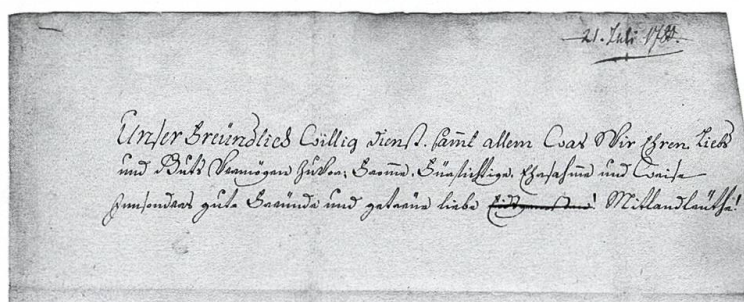 21. Juli 178
Unser Freündlich Willig dienst. samt allem Was Wir Ehren Liebs
und Guts Vermögen zuvor; Fromme, Fürsichtige, Ehrsahme und Weise
Jnnsonders gute Freünde und getreüe liebe Eidtgnossen! Mitlandleüthe!